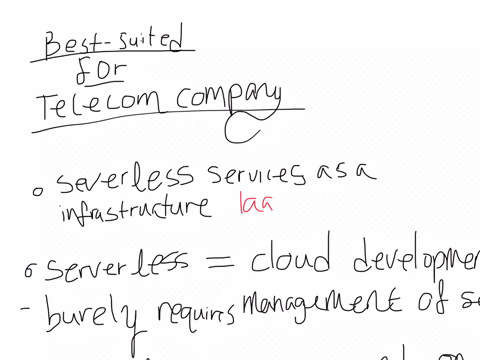 Best-suited
for
Telecom company
o severless services as a
infrastructure Iaa
o serverless = cloud developmen
- burely requires management of se